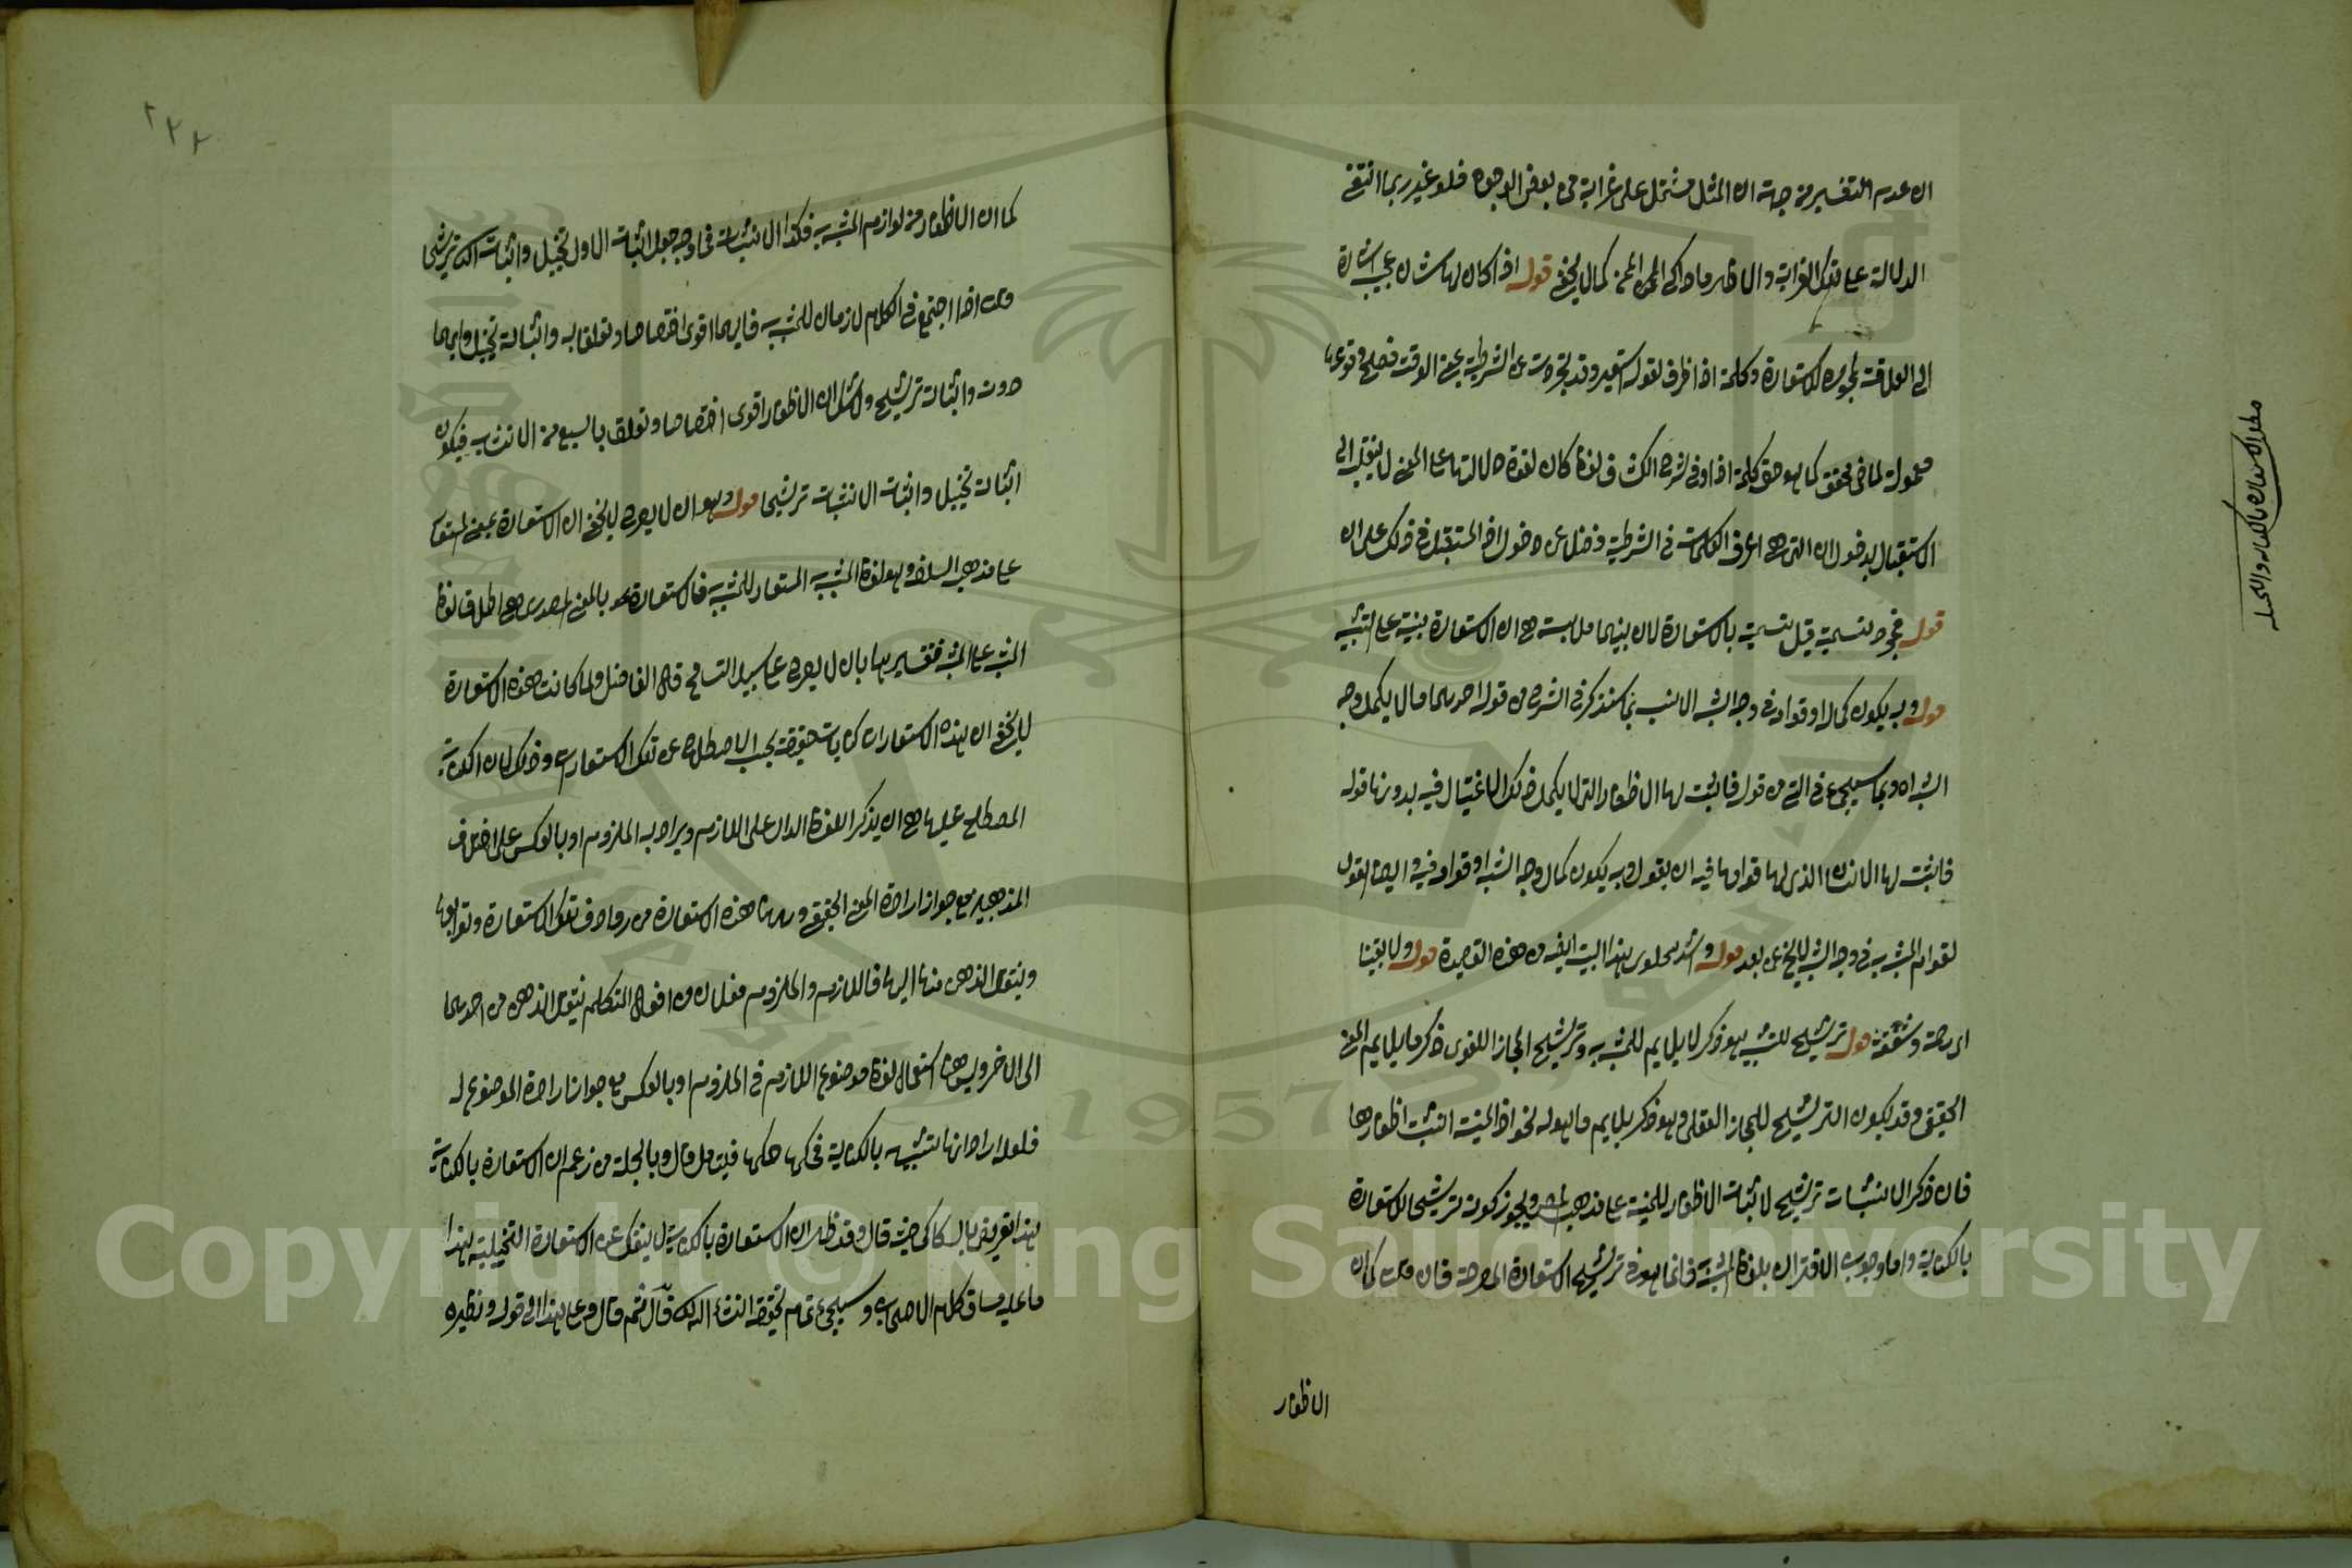 ان عدم التغيير من جهة ان المثل مشتمل على غرابة من بعض الوجوه فلو غير ربما انتفى
الدلالة على تلك الغرابة والظاهر ما ذكره كما لا يخفى قوله اذا كان لها شأن عجيب اشارة
الى العلاقة المجوزة للاستعارة وكلمة اذا ظرف لقوله استعير وقد تجردت عن الشرطية بمعنى الوقت فصلح وقوعها
معمولة لماض محقق كما هو حق كلمة اذا وفي شرح الكشاف لفظ كان لقوة دلالتها على المعنى لا ينقلب الى
الاستقبال بدخول ان التي هي اعرف الكلمات في الشرطية فضلا عن دخول اذ المستقبل في ذلك على ان
قوله فمجرد تسمية قيل تسمية بالاستعارة لان بينهما ملابسة هي ان الاستعارة مبنية على التشبيه
قوله وبه يكون كماله او قوامه في وجه الشبه الانسب بما سنذكر في الشرح من قوله احدهما ما لا يكمل وجه
الشبه اه وبما سيجيء في المتن من قوله فاثبت لها الاظفار التي لا يكمل ذلك الاغتيال فيه بدونها قوله
فاثبت لها اللسان الذي لها قوامها فيه ان يقول وبه يكون كمال وجه الشبه او قوامه فيه ايضا لقول
لقوام المشبه به في وجه الشبه لا يخفى بعده قوله وانشد هذا البيت ايضا من هذه القصيدة قوله ولا بقينا
اي رحمة وشفقة قوله ترشيح للتشبيه هو ذكر ما يلايم للمشبه به وترشيح المجاز اللغوي ذكر ما يلايم المعنى
الحقيقي وقد يكون الترشيح للمجاز العقلي وهو ذكر ما يلايم ما هو له نحو اذا المنية انشبت اظفارها
فان ذكر الانشاب ترشيح لاثبات الاظفار للمنية على مذهب المص ويجوز كونه ترشيحا للاستعارة
بالكناية واما وجوب الاقتران بلفظ المشبه به فانما هو في ترشيح الاستعارة المصرحة فان قلت كما ان
الاظفار
مطلب الاستعارة بالكناية والتخييلية
٢٢٢
كما ان الاظفار من لوازم المشبه به فكذا الانشاب فما وجه جعل اثبات الاول تخييلا واثبات الثاني ترشيحا
قلت اذا اجتمع في الكلام لازمان للمشبه به فايهما اقوى اختصاصا وتعلقا به واثباته تخييل وايهما
دونه واثباته ترشيح ولا شك ان الاظفار اقوى اختصاصا وتعلقا بالسبع من الانشاب فيكون
اثباته تخييل واثبات الانشاب ترشيحا قوله وهو ان لا يصرح لا يخفى ان الاستعارة بمعنى المستعار
على مذهب السلف هو لفظ المشبه به المستعار للمشبه فالاستعارة بالمعنى المصدري هي اطلاق لفظ
المشبه به على المشبه فتفسيرها بان لا يصرح على سبيل التسامح قال الفاضل ولما كانت هذه الاستعارة
لا يخفى ان هذه الاستعارات كنايات حقيقة بحسب الاصطلاح عن تلك الاستعارات وذلك لان الكناية
المصطلح عليها هي ان يذكر اللفظ الدال على اللازم ويراد به الملزوم او بالعكس على اختلاف
المذهبين مع جواز ارادة المعنى الحقيقي وههنا هذه الاستعارة من روادف تلك الاستعارة وتوابعها
وينتقل الذهن منها اليها فاللازم والملزوم فعلان من افعال المتكلم ينتقل الذهن من احدهما
الى الاخر وليس هنا استعمال لفظ موضوع اللازم في الملزوم او بالعكس مع جواز ارادة الموضوع له
فلعله اراد انها شبيهة بالكناية في حكمها فيتأمل قال وبالجملة من زعم ان الاستعارة بالكناية
هذا تعريض بالسكاكي حيث قال وقد ظهر ان الاستعارة بالكناية لا ينفك عن الاستعارة التخييلية هذا
ما عليه مساق كلام الاصحاب وسيجيء تمام تحقيقه انشاء الله تعالى قال ثم قال وعلى هذا الى قوله ونظيره